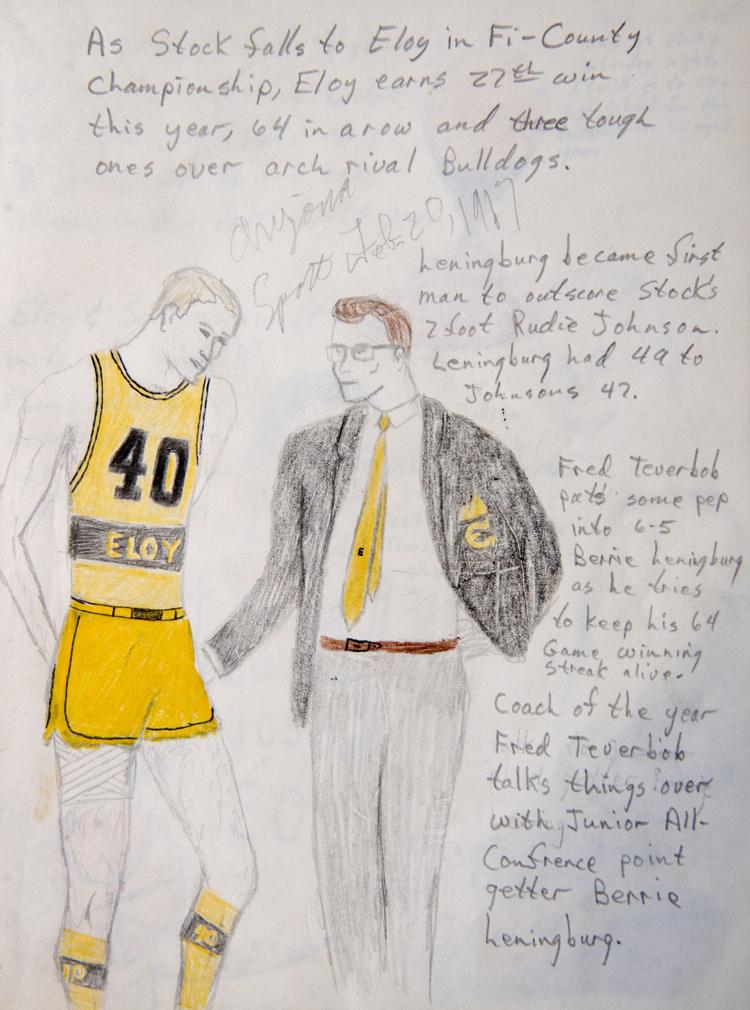 As Stock falls to Eloy in Fi-County
Championship, Eloy earns 27th win
this year, 64 in a row and three tough
ones over arch rival Bulldogs.
Arizona
Sport Feb. 20,
Leningburg became first
man to outscore Stock's
7 foot Rudie Johnson.
Leningburg had 49 to
Johnsons 47.
Fred Teverbob
pats some pep
into 6-5
Berrie Leningburg
as he tries
to keep his 64
Game winning
streak alive.
Coach of the year
Fred Teverbob
talks things over
with Junior All-
Confrence point
getter Berrie
Leningburg.
40
ELOY
E
E
40
40